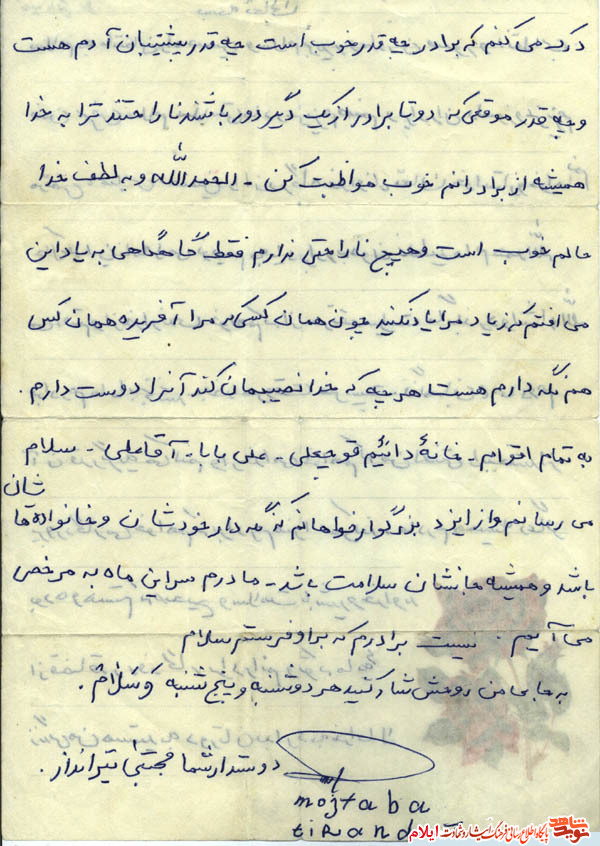 درک می کنم که برادر چه قدر خوب است چه قدر پشتیبان آدم هست
و چه قدر موقعی که دو تا برادر از یک دیگر دور باشند ناراحتند ترا به خدا
همیشه از برادرانم خوب مواظبت کن - الحمدالله و به لطف خدا
حالم خوب است و هیچ ناراحتی ندارم فقط گاهگاهی به یاد این
می افتم که زیاد مرا یاد نکنید چون همان کسی که مرا آفریده همان کس
هم نگه دارم هست هر چه که خدا نصیبمان کند آنرا دوست دارم.
به تمام اقوام - خانهٔ دائیم قوچعلی - علی بابا - آقاعلی - سلام
می رسانم و از ایزد بزرگوار خواهانم که نگه دار خودشان و خانواده هاشان
باشد و همیشه جانشان سلامت باشد - مادرم سر این ماه به مرخصی
می آیم. نیست برادرم که براو فرستم سلام
به جای من رویش شار کنید هر دوشنبه و پنج شنبه والسلام.
دوستدار شما مجتبی تیرانداز.
mojtaba
tiRand
نوید شاهد پایگاه اطلاع رسانی فرهنگ ایثار و شهادت ایلام